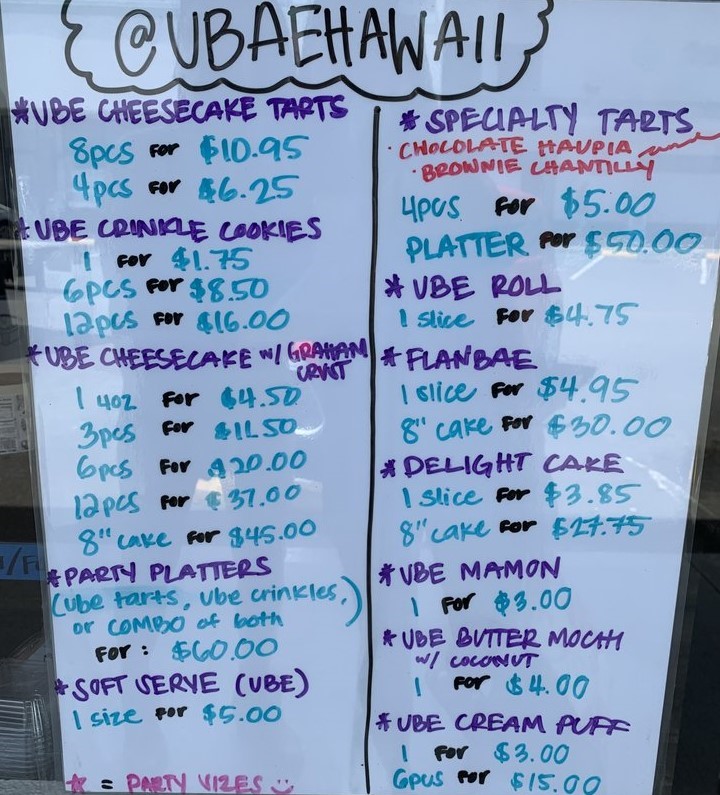 @UBAEHAWAII
*UBE CHEESECAKE TARTS
8pcs FOR $10.95
4pcs FOR $6.25
*UBE CRINKLE COOKIES
1 FOR $1.75
6pcs FOR $8.50
12pcs FOR $16.00
*UBE CHEESECAKE W/ GRAHAM CRUST
1 4oz FOR $4.50
3pcs FOR $11.50
6pcs FOR $20.00
12pcs FOR $37.00
8" cake FOR $45.00
*PARTY PLATTERS
(ube tarts, ube crinkles,
or COMBO of both)
FOR: $60.00
*SOFT SERVE (UBE)
1 size FOR $5.00
* = PARTY VIZES
*SPECIALTY TARTS
· CHOCOLATE HAUPIA
· BROWNIE CHANTILLY
4pcs FOR $5.00
PLATTER FOR $50.00
*UBE ROLL
1 slice FOR $4.75
*FLANBAE
1 slice FOR $4.95
8" cake FOR $30.00
*DELIGHT CAKE
1 slice FOR $3.85
8" cake FOR $27.75
*UBE MAMON
1 FOR $3.00
*UBE BUTTER MOCHI
W/ COCONUT
1 FOR $4.00
*UBE CREAM PUFF
1 FOR $3.00
6pcs FOR $15.00